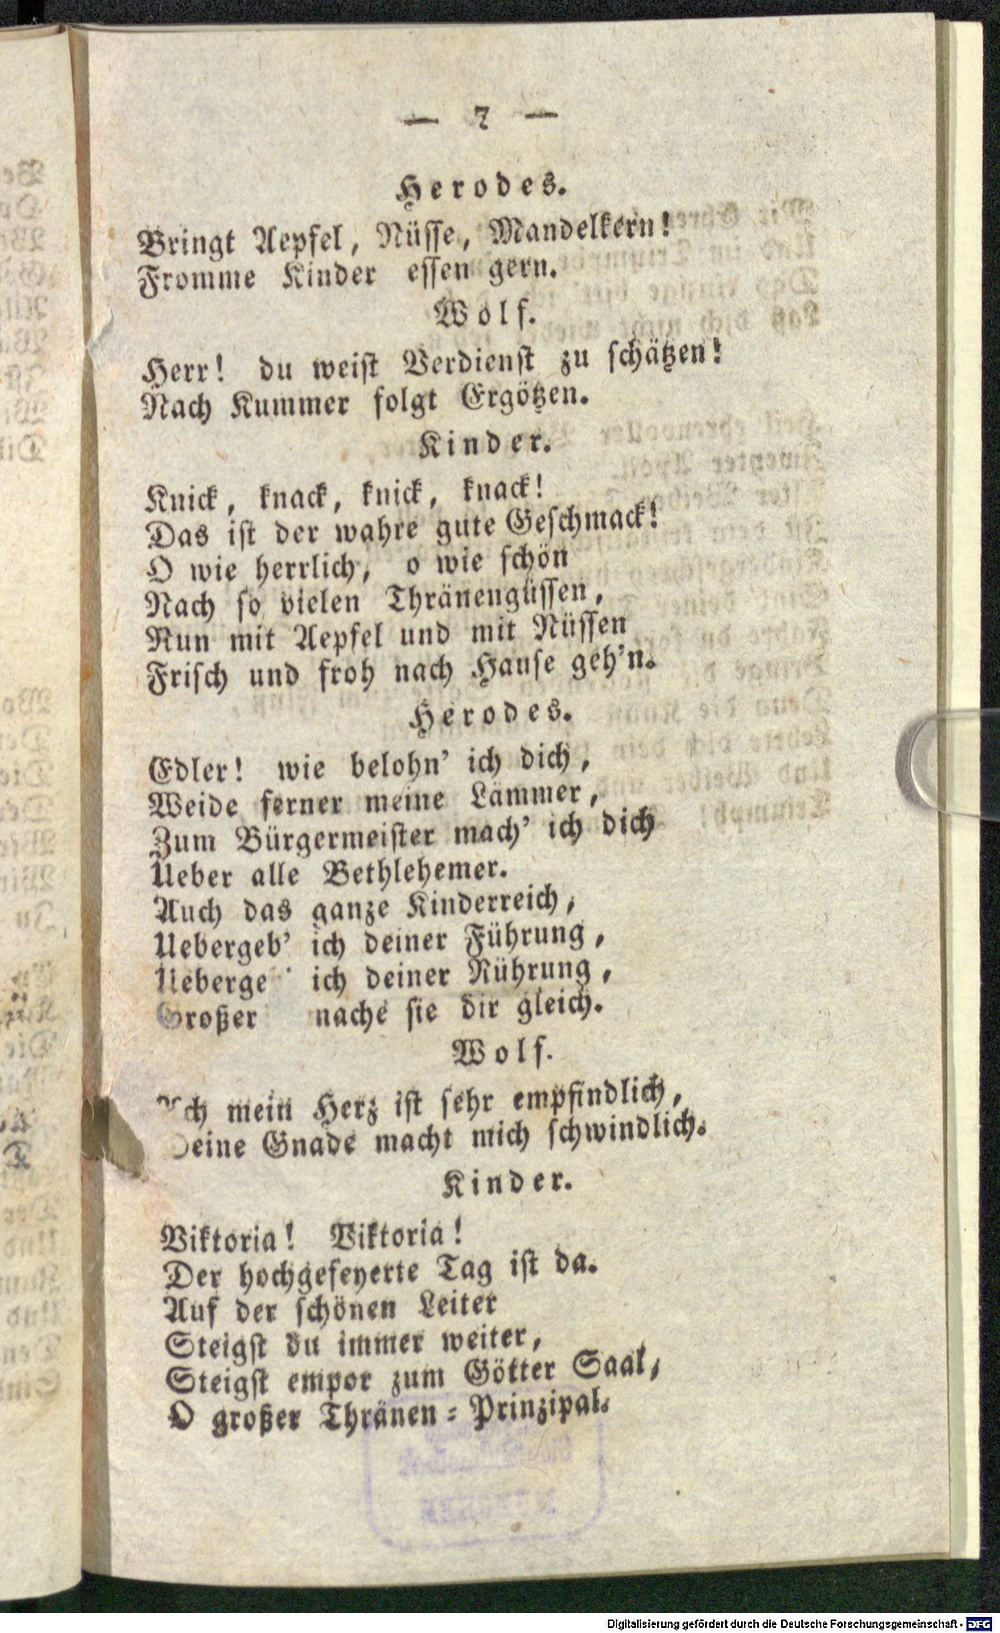 — 7 —
Herodes.
Bringt Aepfel, Nüsse, Mandelkern!
Fromme Kinder essen gern.
Wolf.
Herr! du weist Verdienst zu schätzen!
Nach Kummer folgt Ergötzen.
Kinder.
Knick, knack, knick, knack!
Das ist der wahre gute Geschmack!
O wie herrlich, o wie schön
Nach so vielen Thränengüssen,
Nun mit Aepfel und mit Nüssen
Frisch und froh nach Hause geh'n.
Herodes.
Edler! wie belohn' ich dich,
Weide ferner meine Lämmer,
Zum Bürgermeister mach' ich dich
Ueber alle Bethlehemer.
Auch das ganze Kinderreich,
Uebergeb' ich deiner Führung,
Ueberge ' ich deiner Rührung,
Großer nache sie dir gleich.
Wolf.
Ach mein Herz ist sehr empfindlich,
Deine Gnade macht mich schwindlich.
Kinder.
Viktoria! Viktoria!
Der hochgefeyerte Tag ist da.
Auf der schönen Leiter
Steigst du immer weiter,
Steigst empor zum Götter Saal,
O großer Thränen-Prinzipal.
Digitalisierung gefördert durch die Deutsche Forschungsgemeinschaft - DFG